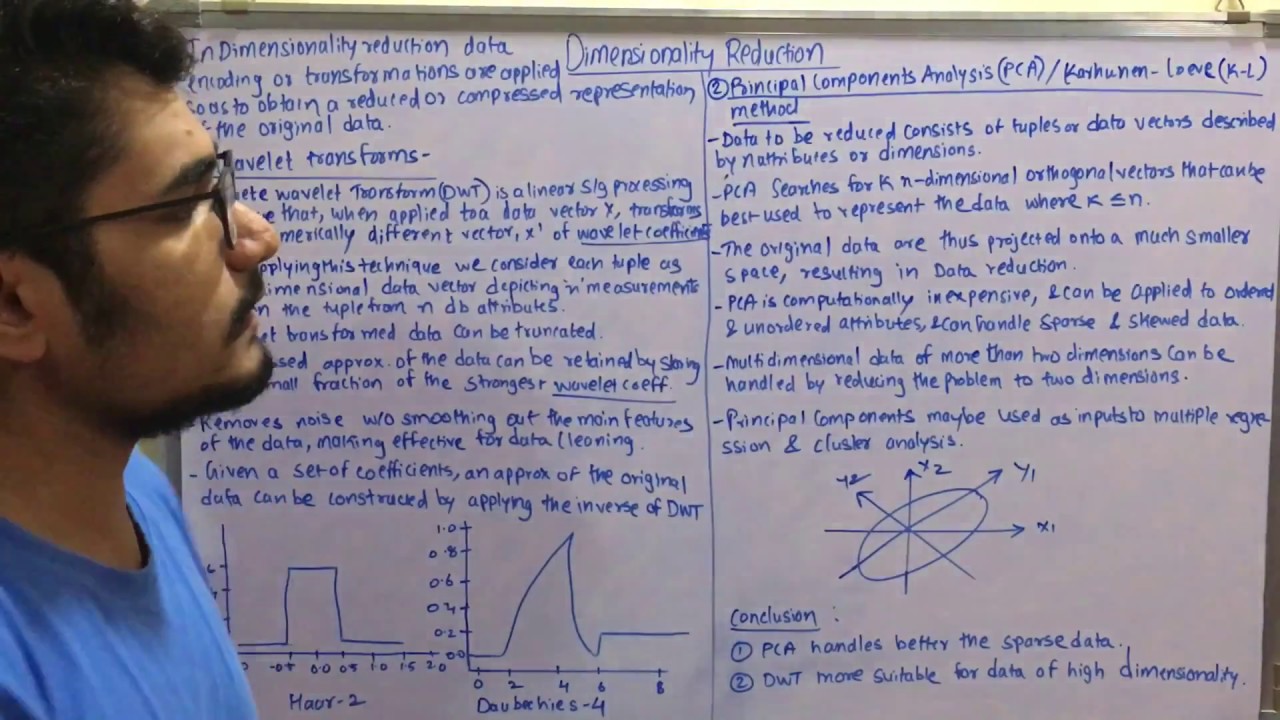 Dimensionality Reduction
In Dimensionality reduction data
encoding or transformations are applied
so as to obtain a reduced or compressed representation
the original data.
avelet transforms-
ete wavelet Transform (DWT) is a linear sig processing
e that, when applied to a data vector X, transforms
merically different vector, x' of wavelet coefficients
pplying this technique we consider each tuple as
imensional data vector depicting 'n' measurements
n the tuple from n db attributes.
et transformed data can be truncated.
sed approx. of the data can be retained by storing
mall fraction of the strongest wavelet coeff.
- Removes noise w/o smoothing out the main features
of the data, making effective for data cleaning.
- Given a set of coefficients, an approx of the original
data can be constructed by applying the inverse of DWT
-0.5 0.0 0.5 1.0 1.5 2.0
Haar-2
1.0
0.8
0.6
0.4
0.2
0.0
0 2 4 6 8
Daubechies-4
② Principal Components Analysis (PCA) / Karhunen-Loeve (K-L)
method
- Data to be reduced consists of tuples or data vectors described
by n attributes or dimensions.
- PCA Searches for K n-dimensional orthogonal vectors that can be
best used to represent the data where K ≤ n.
- The original data are thus projected onto a much smaller
space, resulting in Data reduction.
- PCA is computationally inexpensive, & can be applied to ordered
& unordered attributes, & can handle sparse & skewed data.
- Multidimensional data of more than two dimensions can be
handled by reducing the problem to two dimensions.
- Principal Components maybe used as inputs to multiple regre-
ssion & cluster analysis.
Y2 X2 Y1
X1
Conclusion :
① PCA handles better the sparse data.
② DWT more suitable for data of high dimensionality.